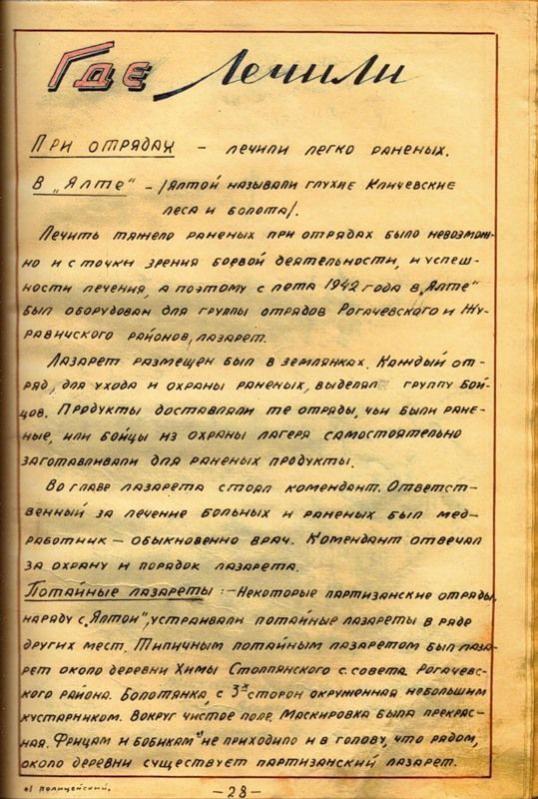 Где Лечили
При отрядах – лечили легко раненых.
В „Ялте“ – /Ялтой называли глухие Кличевские
леса и болота/.
Лечить тяжело раненых при отрядах было невозмож-
но и с точки зрения боевой деятельности, и успеш-
ности лечения, а поэтому с лета 1942 года в „Ялте“
был оборудован для группы отрядов Рогачевского и Жу-
равичского районов, лазарет.
Лазарет размещен был в землянках. Каждый от-
ряд, для ухода и охраны раненых, выделял группу бой-
цов. Продукты доставляли те отряды, чьи были ране-
ные, или бойцы из охраны лагеря самостоятельно
заготавливали для раненых продукты.
Во главе лазарета стоял комендант. Ответст-
венный за лечение больных и раненых был мед-
работник – обыкновенно врач. Комендант отвечал
за охрану и порядок лазарета.
Потайные лазареты :– Некоторые партизанские отряды,
наряду с „Ялтой“, устраивали потайные лазареты в ряде
других мест. Типичным потайным лазаретом был лаза-
рет около деревни Химы Столпянского с. совета. Рогачевс-
кого района. Болотянка, с 3х сторон окруженная небольшим
кустарником. Вокруг чистое поле. Маскировка была прекрас-
ная. Фрицам и бобикам х/ не приходило и в голову, что рядом,
около деревни существует партизанский лазарет.
х/ полицейский.
– 28 –